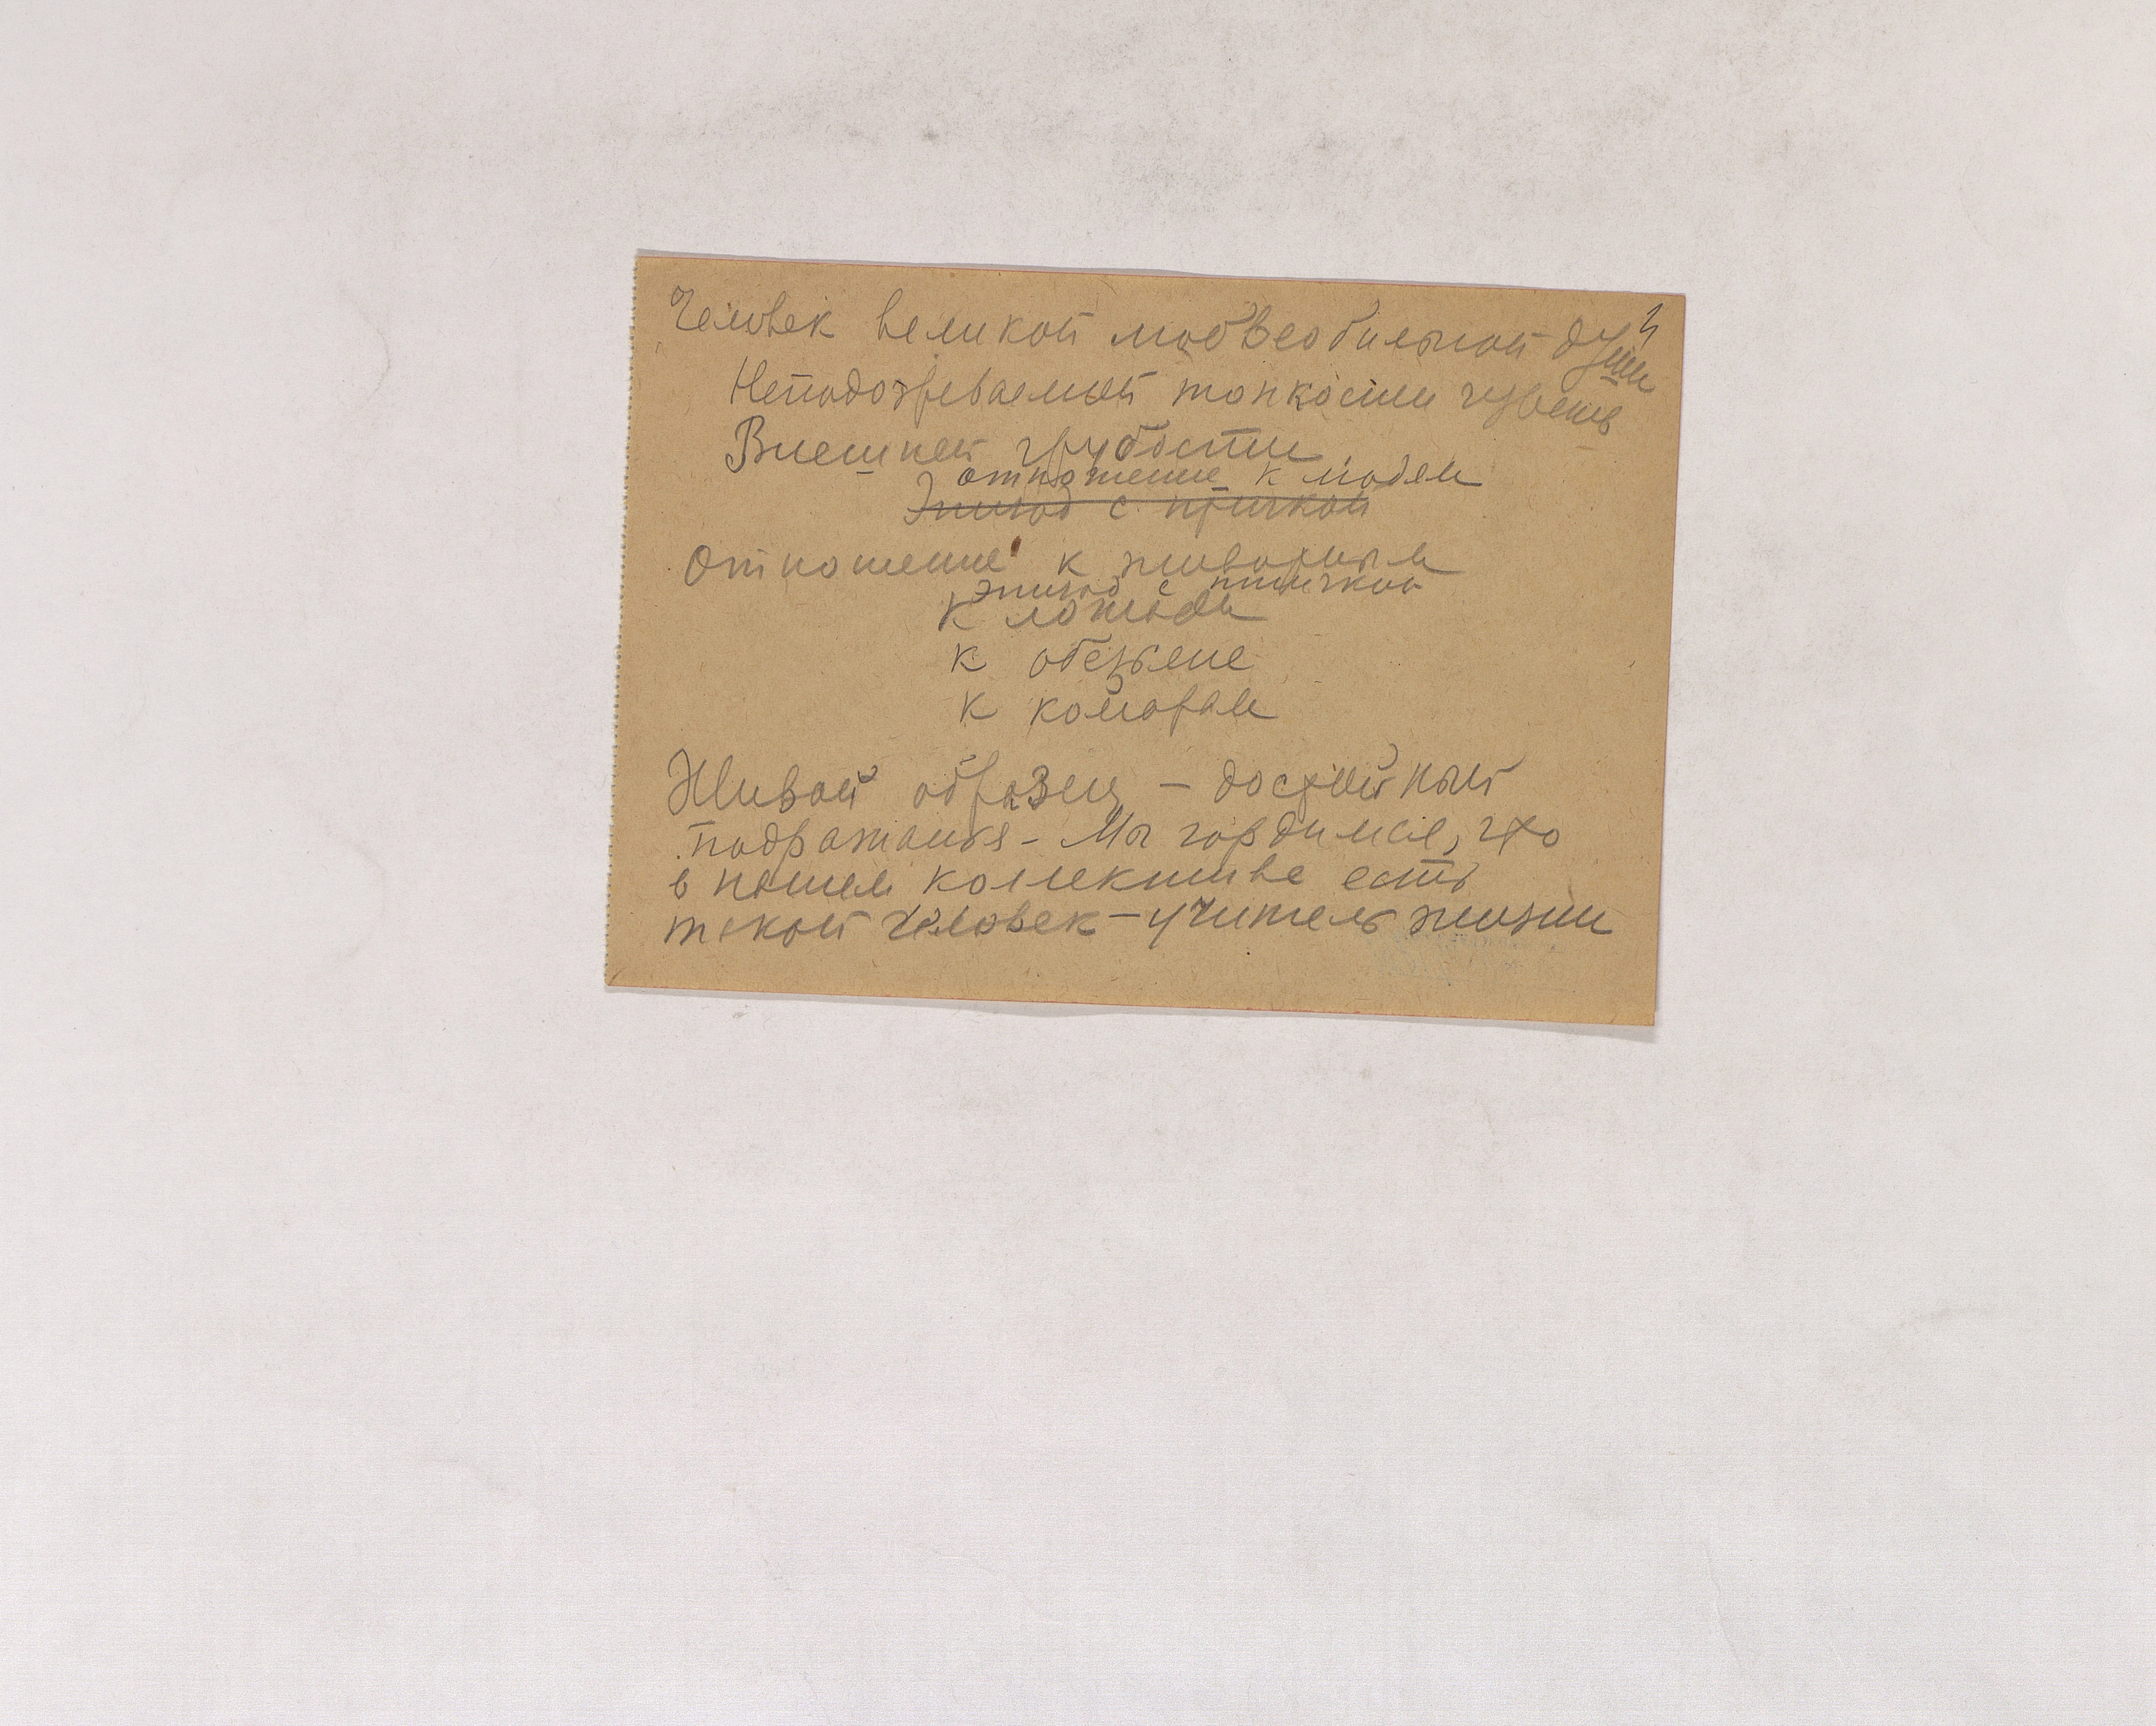 Человек великой любвеобильной души
Неподозреваемой тонкости чувств
Внешней грубости
отношение к людям
Эпизод с птичкой
Отношение к животным
эпизод с птичкой
к лошади
к обезьяне
к комарам
Живой образец – достойный
подражания – Мы гордимся, что
в нашем коллективе есть
такой человек – учитель жизни